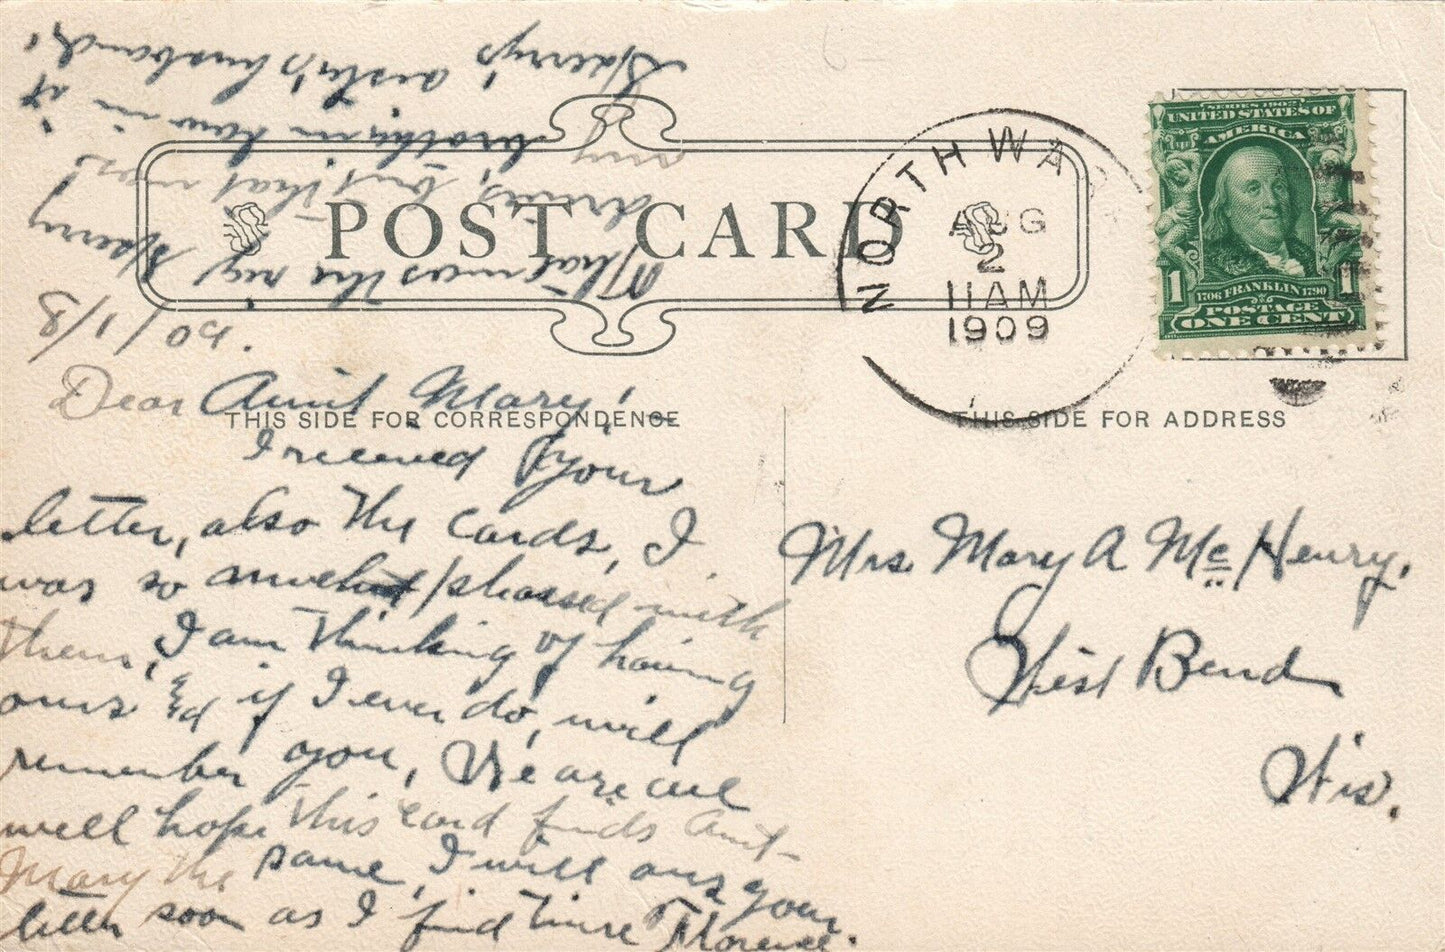 POST CARD
THIS SIDE FOR CORRESPONDENCE
THIS SIDE FOR ADDRESS
NORTH WAS
AUG
2
11 AM
1909
SERIES 1902
UNITED STATES OF
AMERICA
1
1
1706 FRANKLIN 1790
POSTAGE
ONE CENT
8/1/09.
Dear Aunt Mary,
I received your
letter, also the cards, I
was so much pleased with
them, I am thinking of having
ours if I ever do, will
remember you, We are all
well hope this card finds Aunt
Mary the same, I will ans your
letter soon as I find time Florence.
that was the
but that
my brother in law in it
sister's husband,
Mrs. Mary A Mc Henry,
West Bend
Wis.